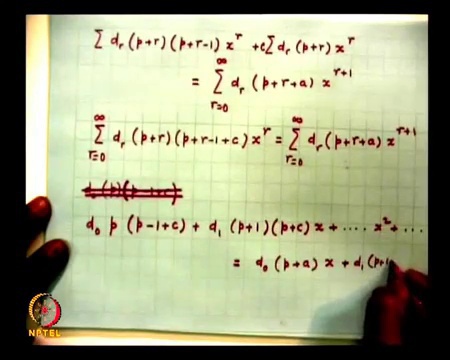 Σ d_r (p+r)(p+r-1) x^r + c Σ d_r (p+r) x^r
= Σ_{r=0}^{∞} d_r (p+r+a) x^{r+1}
Σ_{r=0}^{∞} d_r (p+r)(p+r-1+c) x^r = Σ_{r=0}^{∞} d_r (p+r+a) x^{r+1}
d_0 p (p-1+c) + d_1 (p+1)(p+c) x + .... x^2 + ...
= d_0 (p+a) x + d_1 (p+1
NPTEL